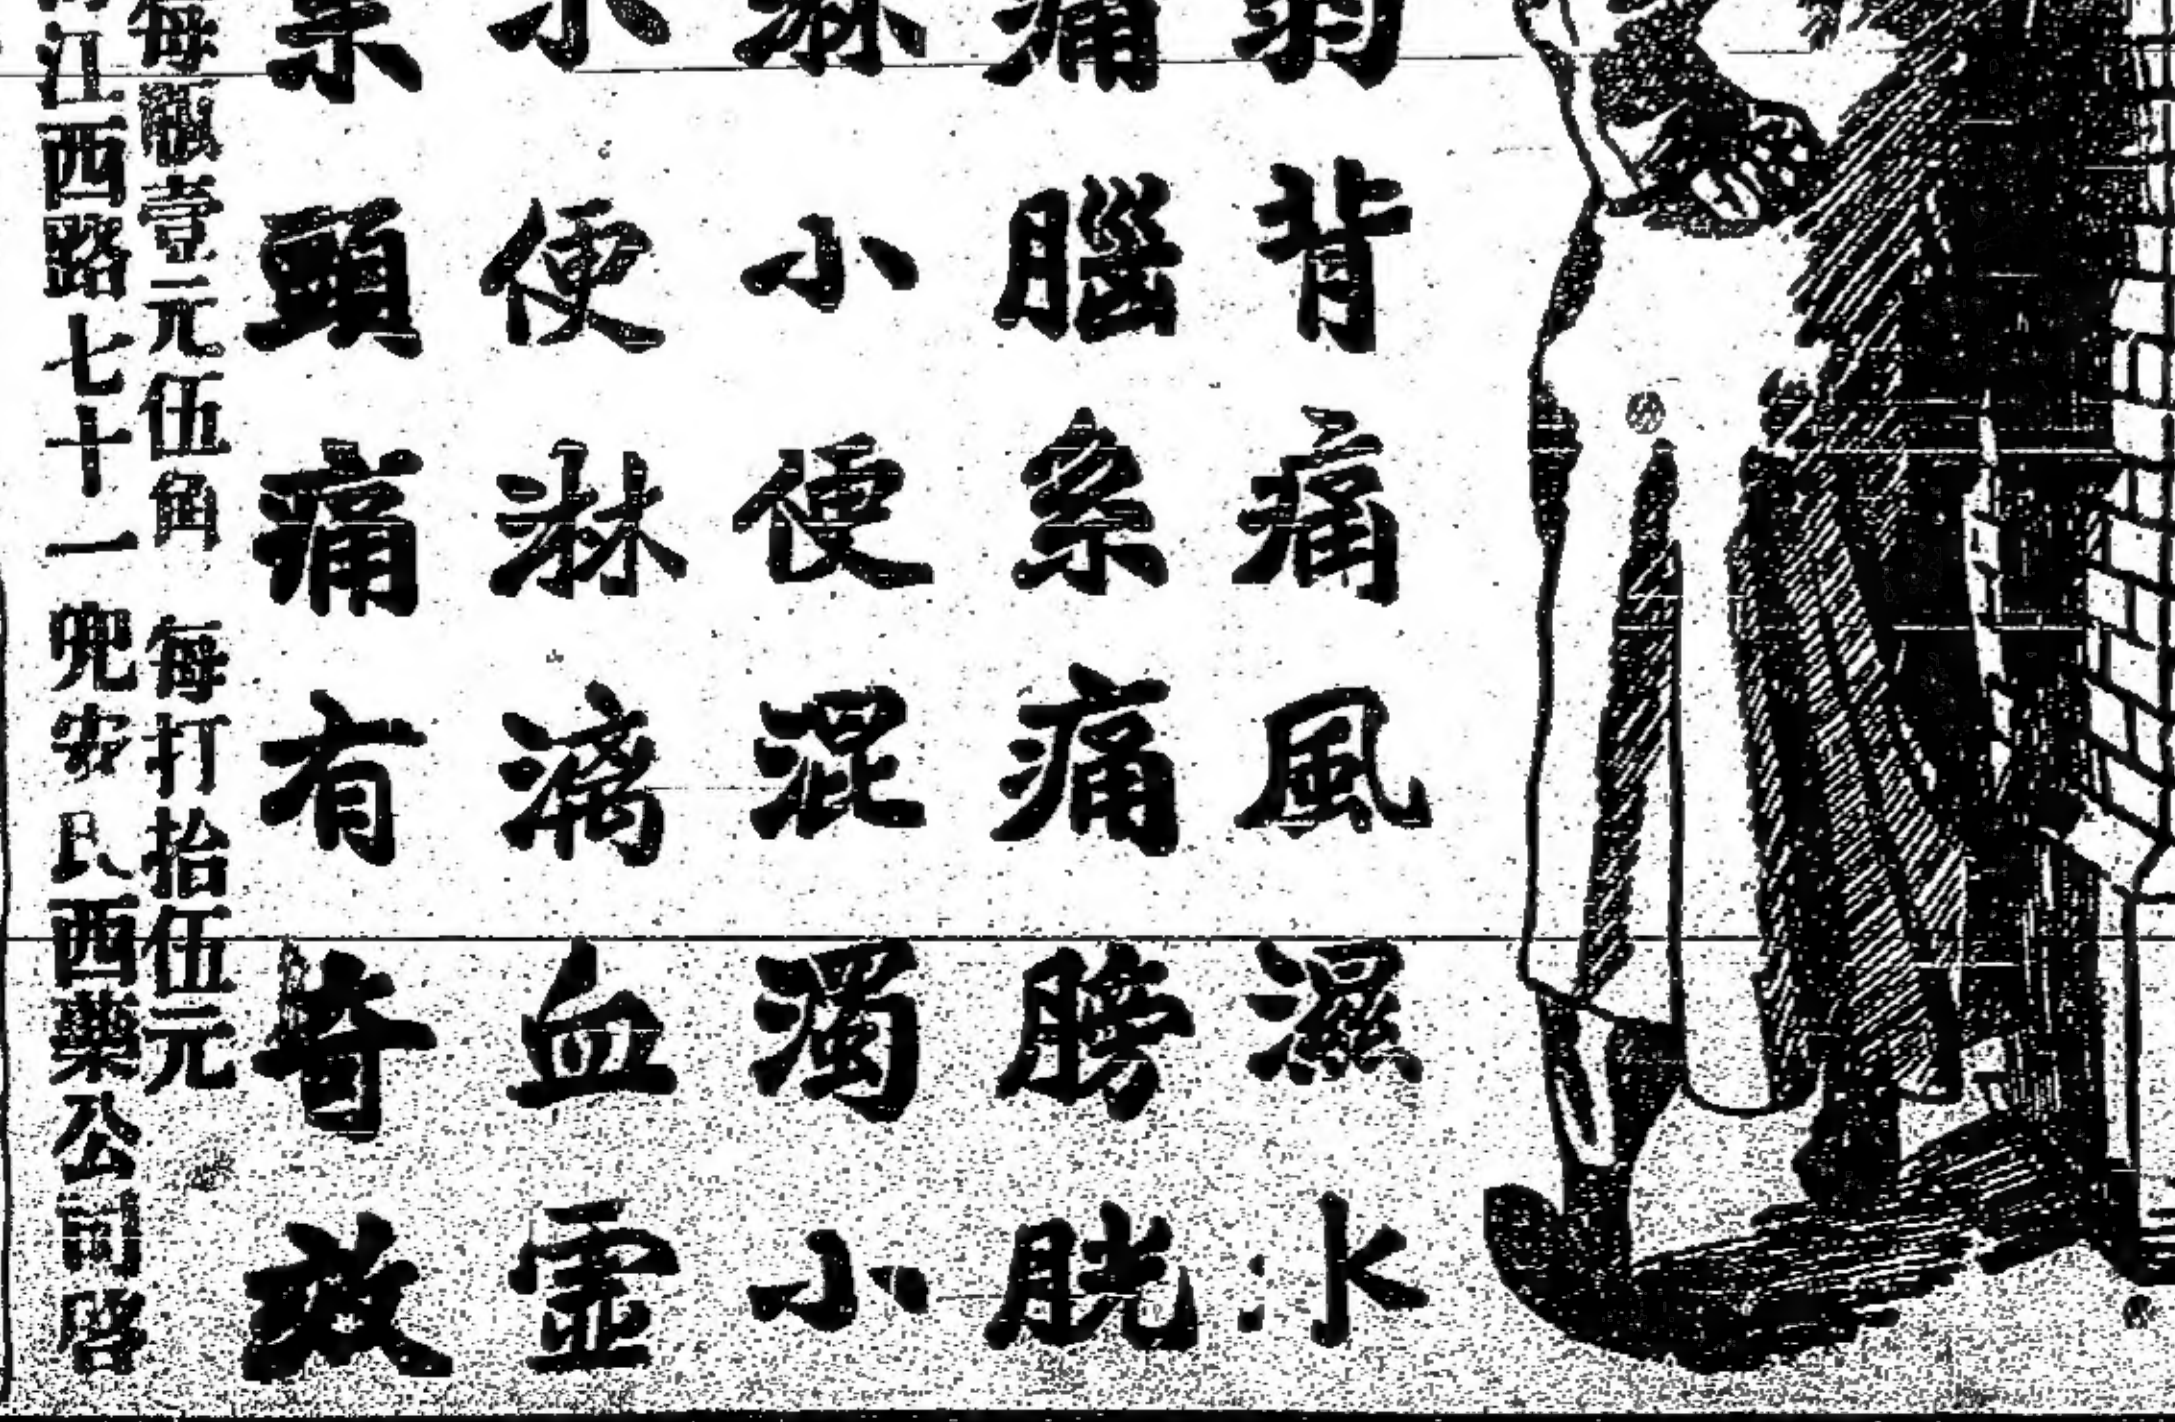 弱背痛風濕水
痛腦系痛膀胱
淋小便混濁小
小便淋漓血霊
系頭痛有奇效
每瓶壹元伍角 每打拾伍元
江西路七十一兜安氏西藥公司啓